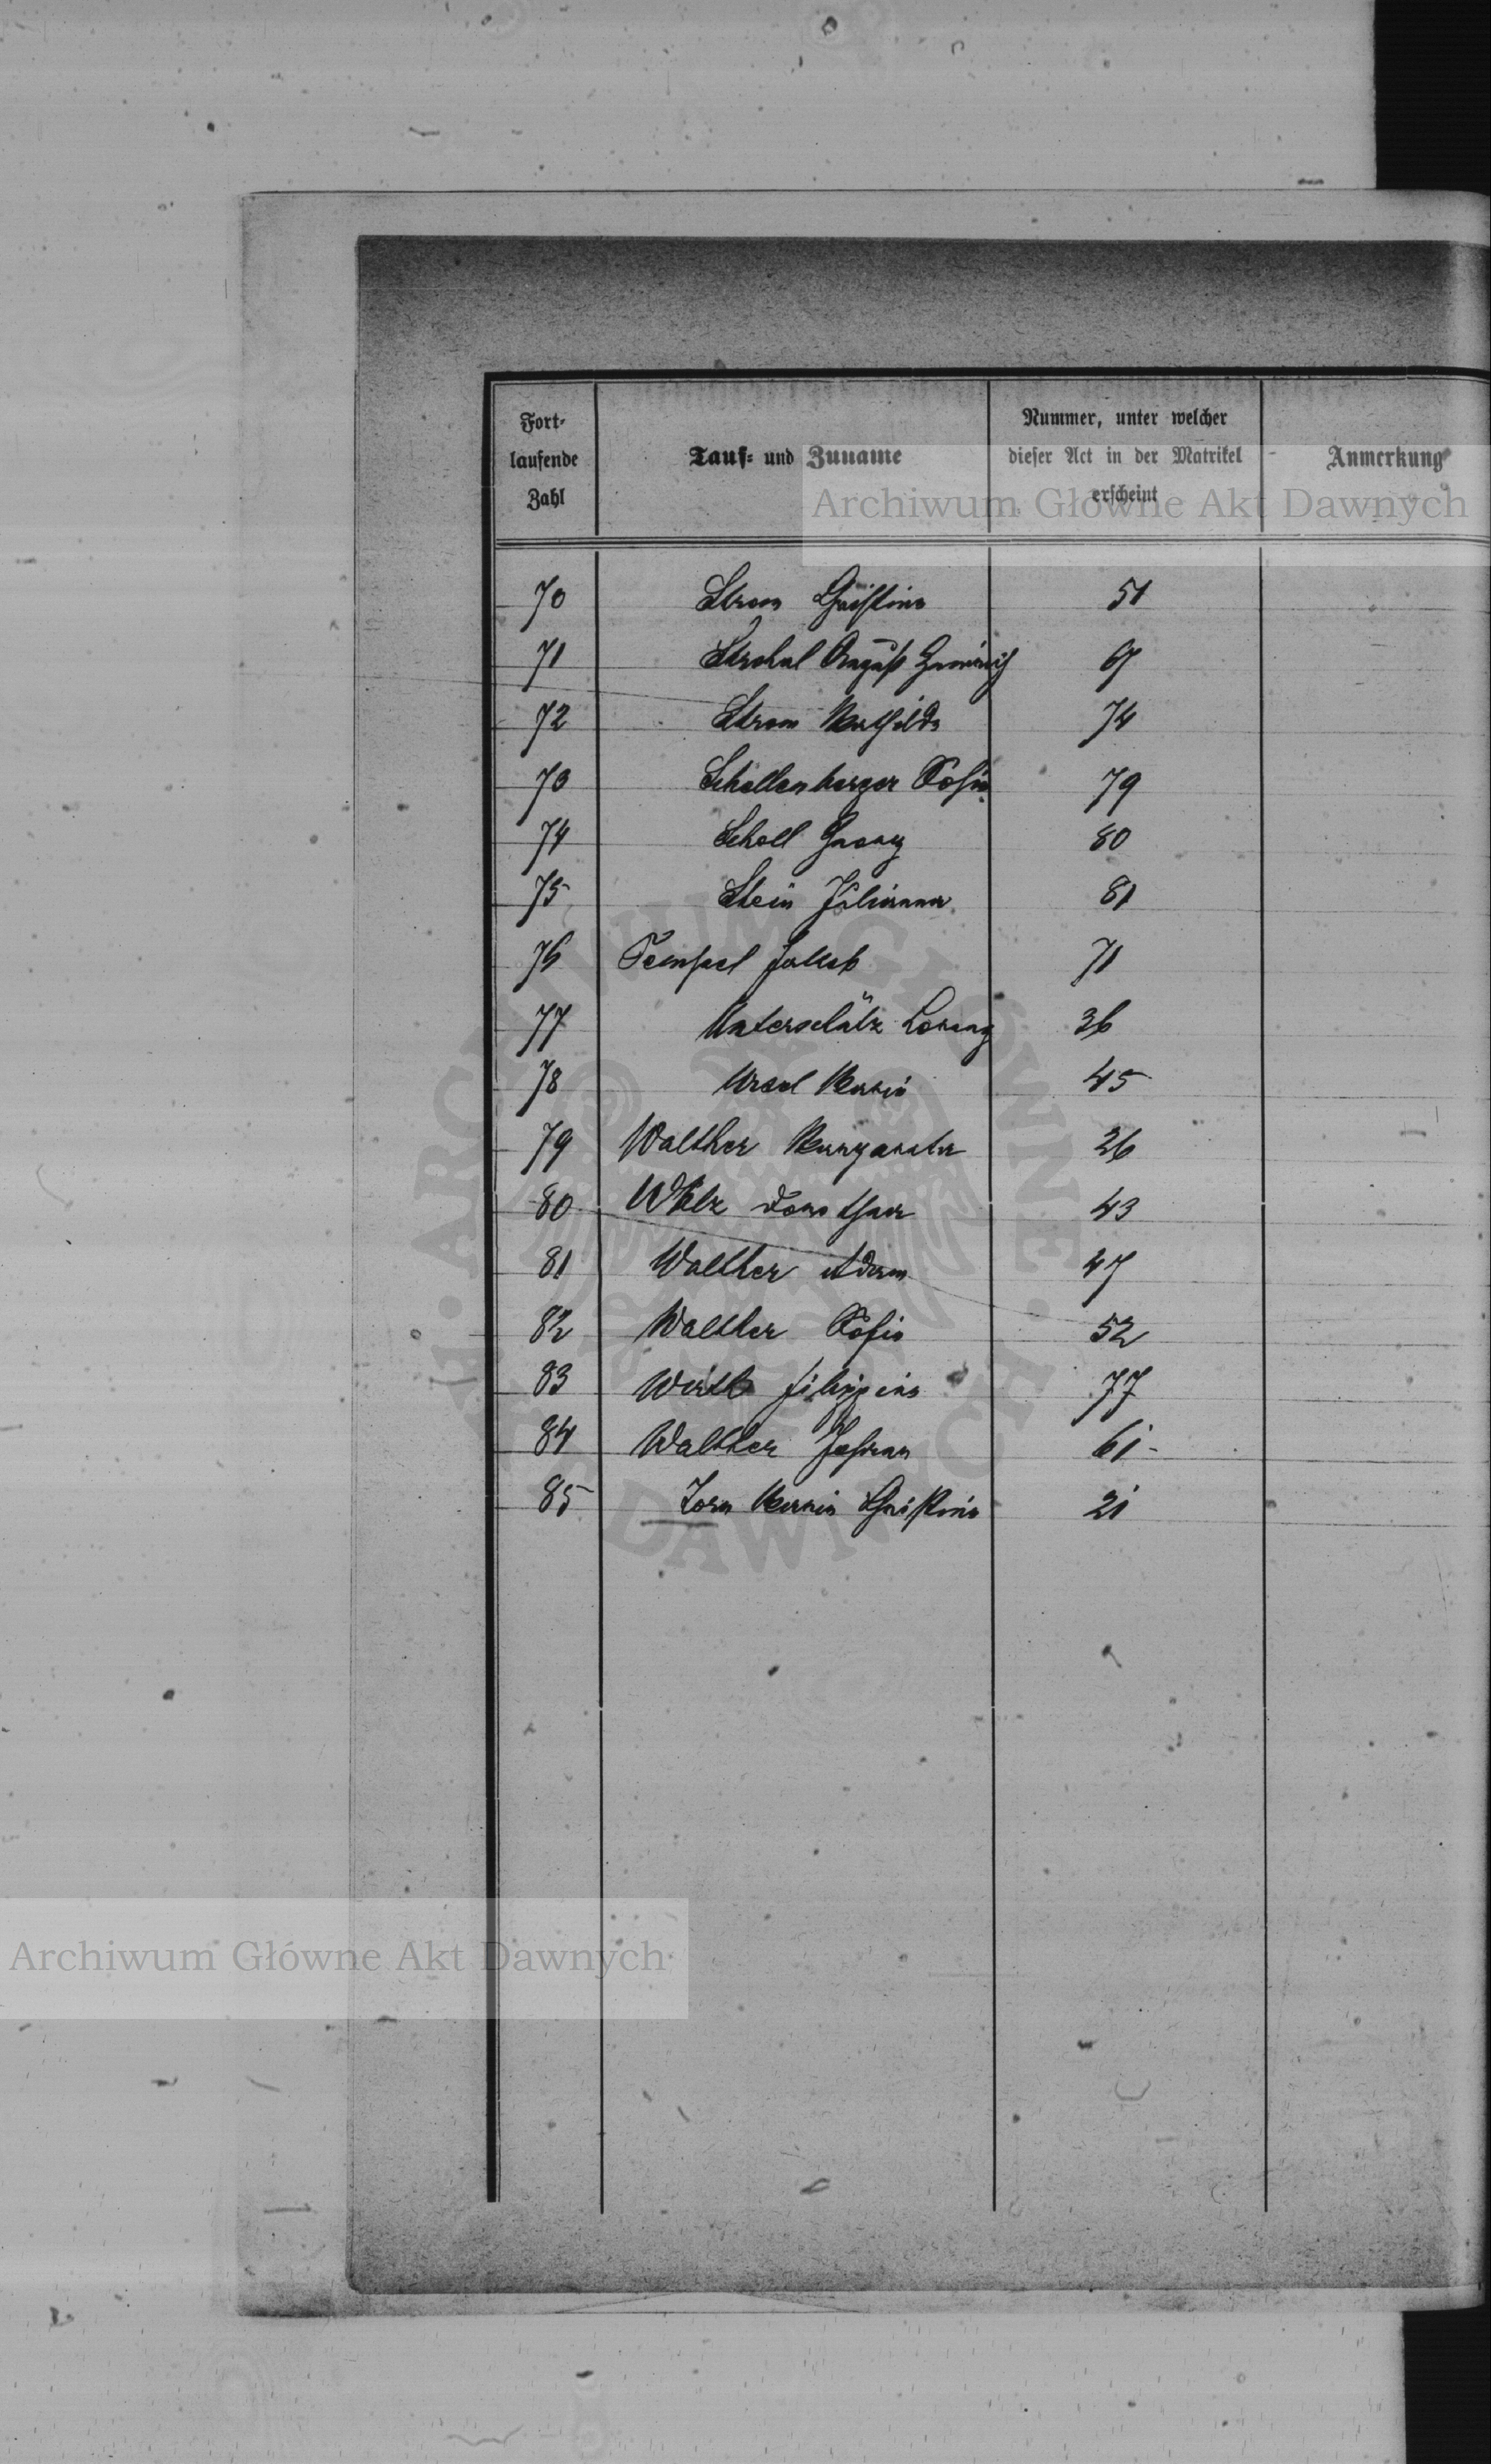 Fort-
laufende
Zahl
Tauf- und Zuname
Nummer, unter welcher
dieser Act in der Matrikel
erscheint
Anmerkung
Archiwum Główne Akt Dawnych
70 Strom Christina 51
71 August Heinrich 67
72 Strom Mathilde 74
73 Schellenberger Sofia 79
74 Scholl Georg 80
75 Stein Juliana 81
76 Tempel Jakob 71
77 Unterschütz Lorenz 36
78 Ursel Maria 45
79 Walther Margaretha 26
80 Wälz Dorothea 43
81 Walther Adam 47
82 Walther Sofia 52
83 Wirth Filippina 77
84 Walther Johann 61
85 Zorn Maria Christina 21
Archiwum Główne Akt Dawnych
ARCHIWUM GŁÓWNE AKT DAWNYCH